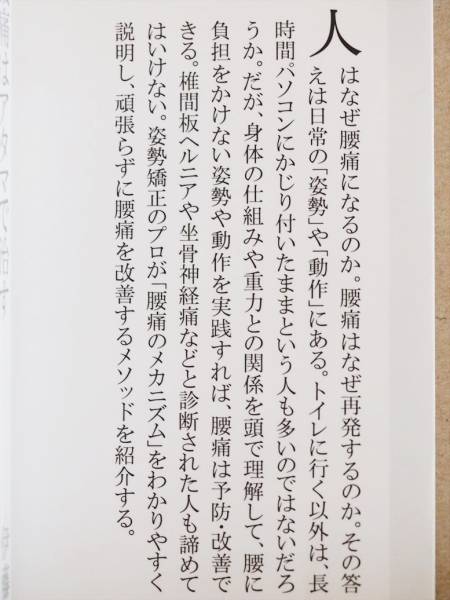 人はなぜ腰痛になるのか。腰痛はなぜ再発するのか。その答
えは日常の「姿勢」や「動作」にある。トイレに行く以外は、長
時間パソコンにかじり付いたままという人も多いのではないだろ
うか。だが、身体の仕組みや重力との関係を頭で理解して、腰に
負担をかけない姿勢や動作を実践すれば、腰痛は予防・改善で
きる。椎間板ヘルニアや坐骨神経痛などと診断された人も諦めて
はいけない。姿勢矯正のプロが「腰痛のメカニズム」をわかりやすく
説明し、頑張らずに腰痛を改善するメソッドを紹介する。